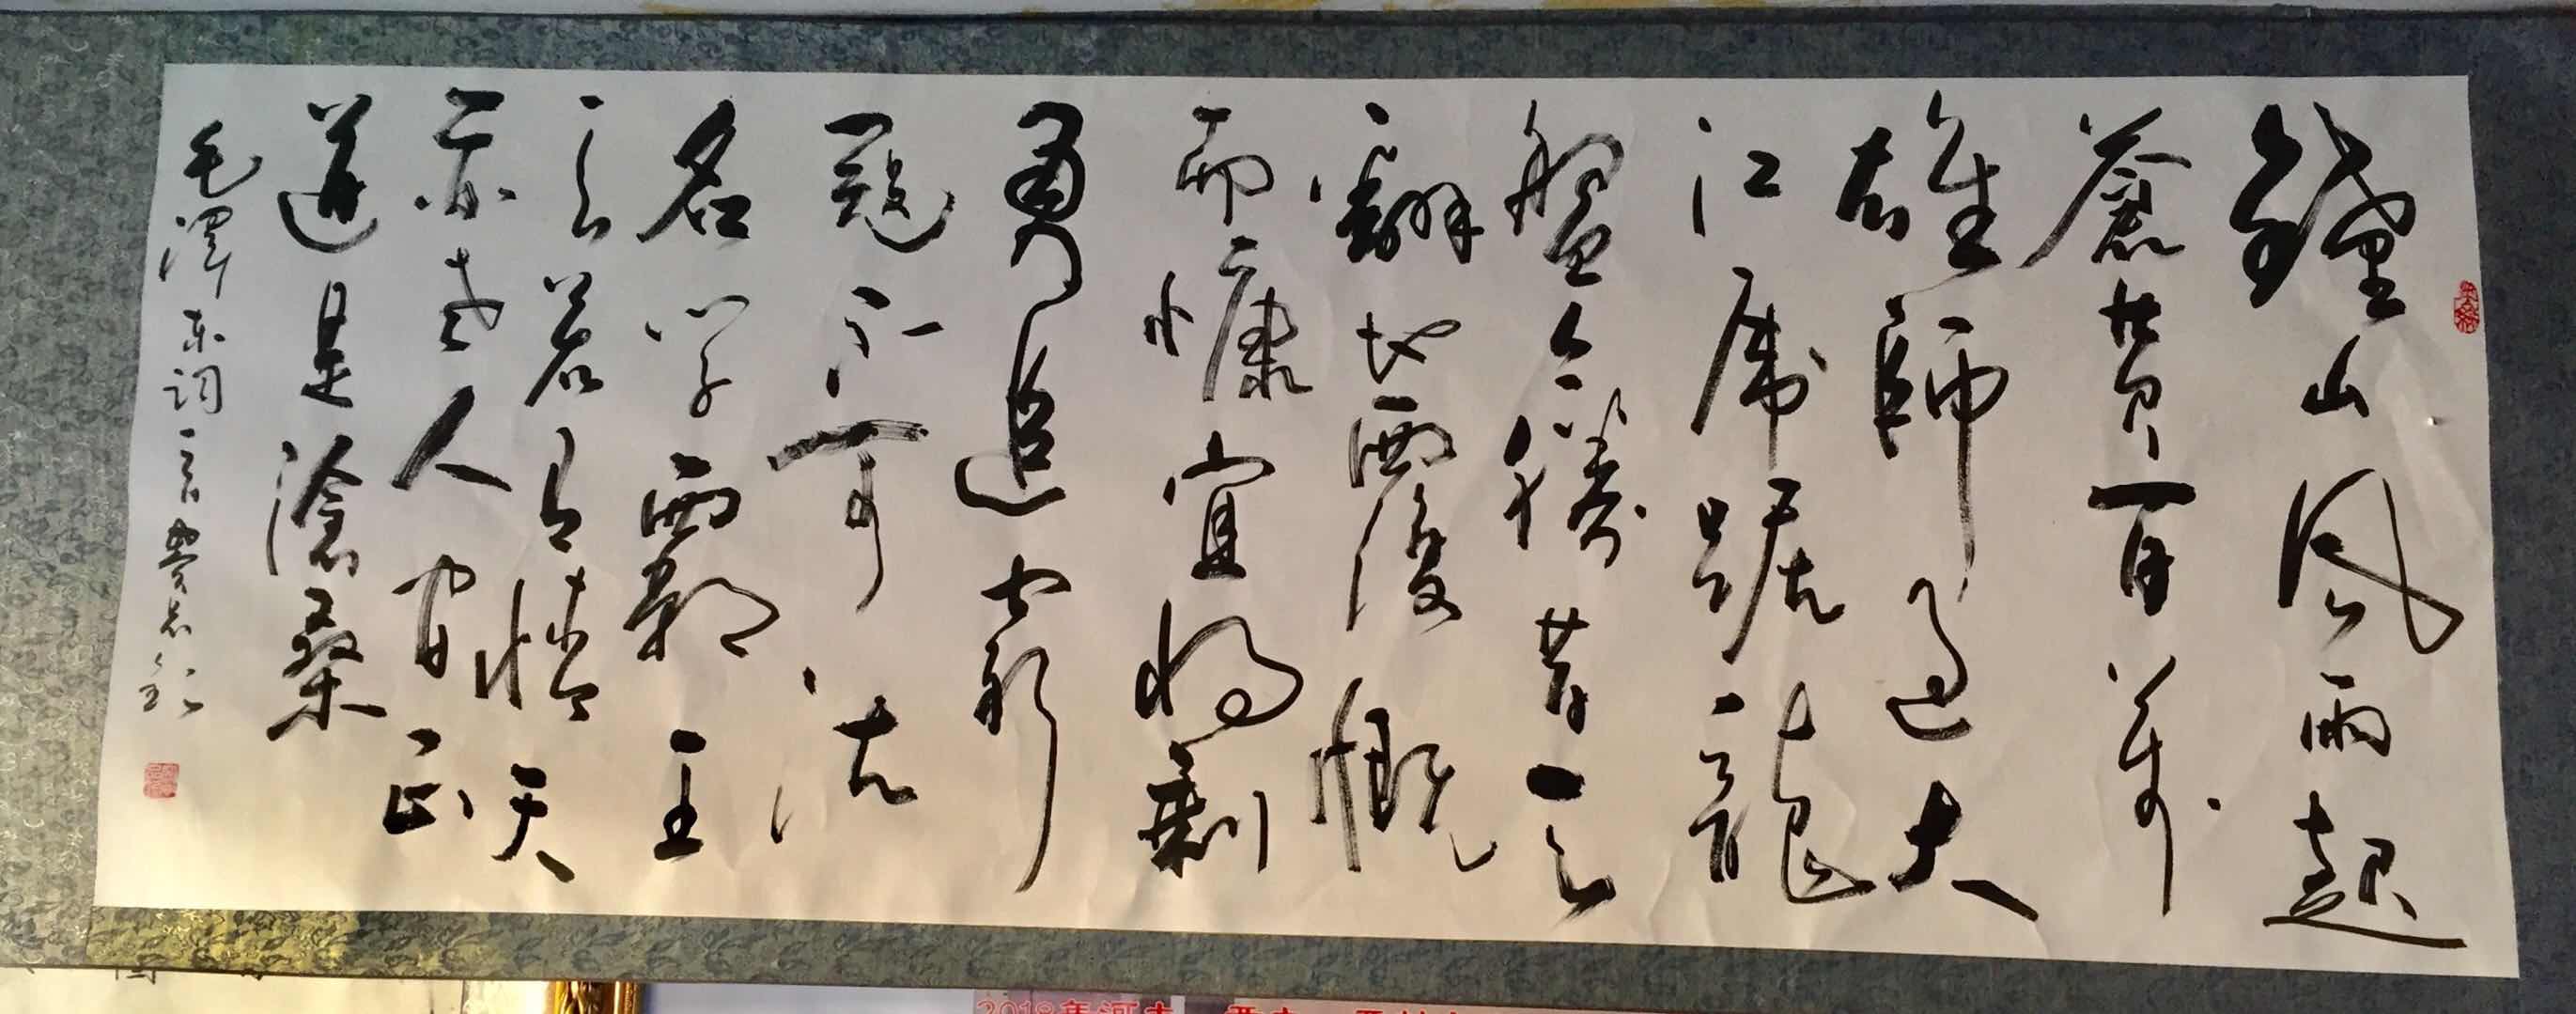 鍾山風雨起
蒼黄百萬
雄師過大
江虎踞龍
盤今勝昔天
翻地覆慨
而慷宜將剩
勇追窮
寇不可沽
名學霸王
天若有情天
亦老人間正
道是滄桑
毛澤東詞一首
2018年河